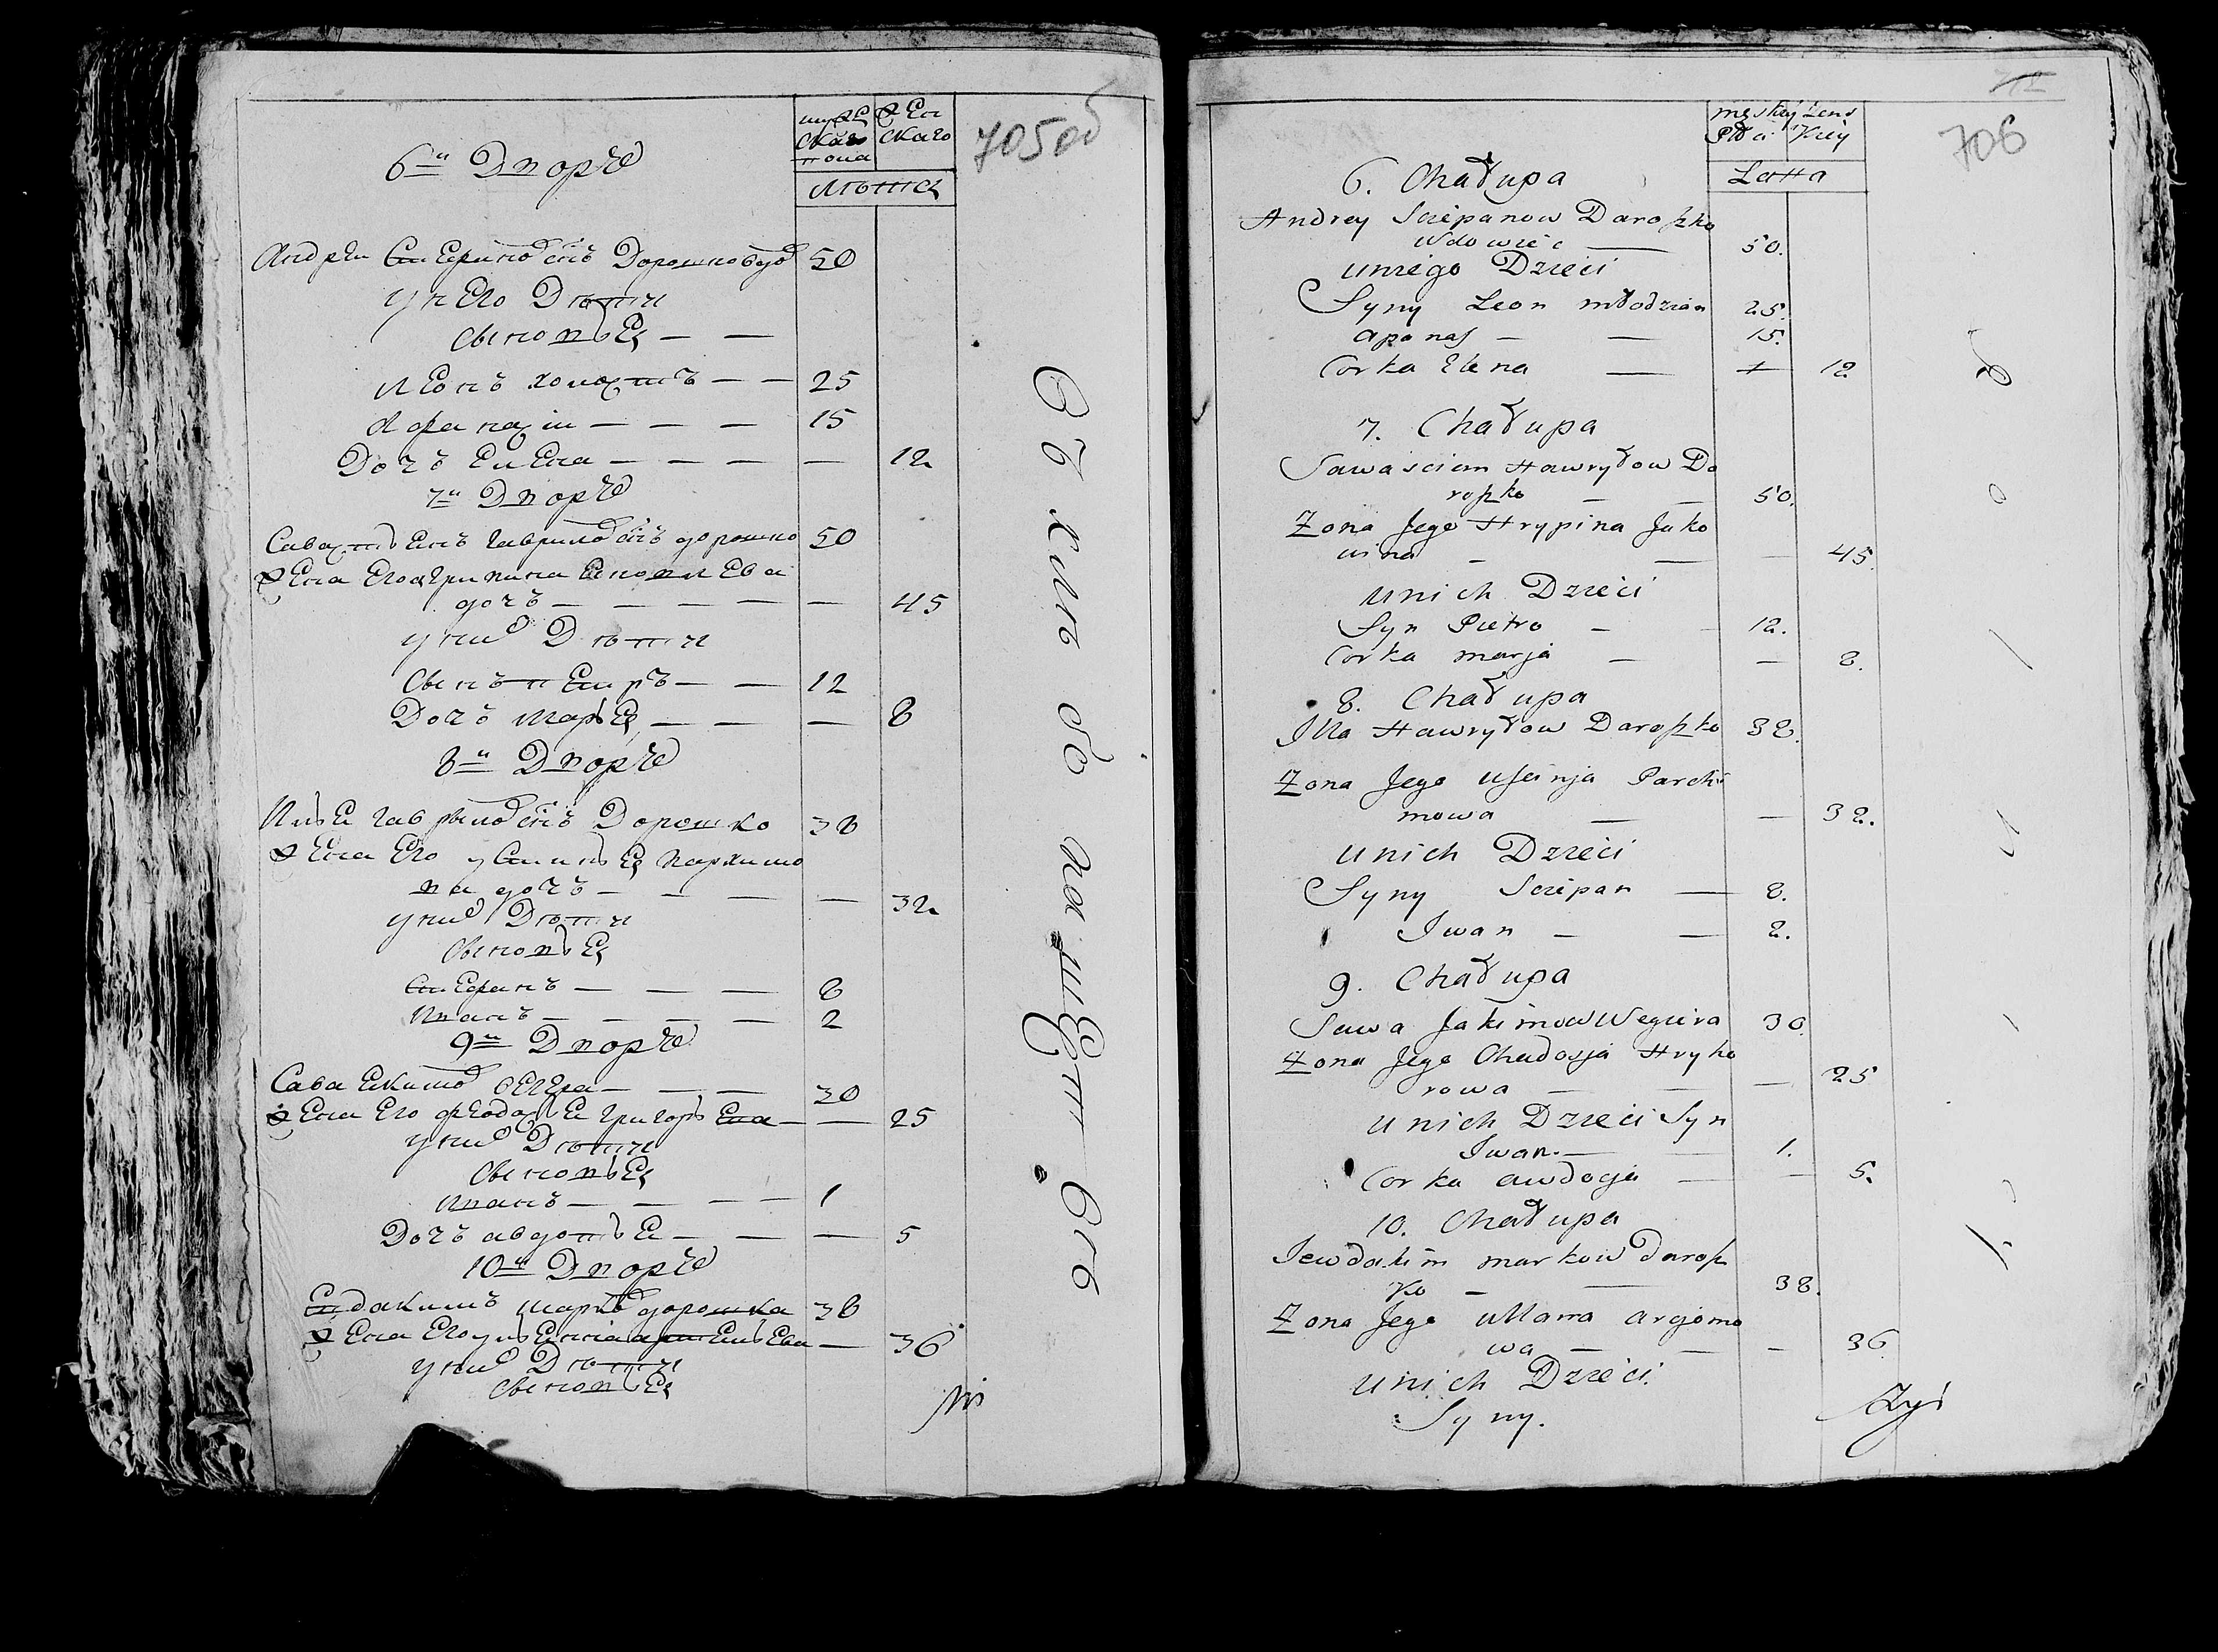 муже
женскаго
скаго
пола
лѣта
705об
6й Дворъ
Андрей Степановъ сынъ Дорошко вдов 50
у него Дѣти
сыновья — —
Леонъ холостъ — — 25
Афанасiй — — — 15
Дочь Елена — — — — 12
7й Дворъ
Савастьянъ гавриловъ сынъ дорошко 50
жена его агрипина Яковлева
дочь — — — — — 45
у них Дѣти
сынъ петръ — — 12
Дочь марья — — — — 8
8й Дворъ
Илья гаврыловъ сынъ Дорошко 38
жена его устинья пархимо
ва дочь — — — — 32
у них Дѣти
сыновья
Степанъ — — — 8
Иванъ — — — — 2
9й Дворъ
Сава Якимов вегера — — — 30
жена его феодосья григорьева — — 25
у них Дѣти
сыновья
Иванъ — — — — 1
Дочь авдотья — — — 5
10й Дворъ
Евдакимъ марков дорошка 38
жена его ульянна артемьева — 36
у них Дѣти
сыновья
męskiey żeńs
Płci kiey
Latta
706
6. Chałupa
Andrey Sciepanow Daroszko
wdowiec — 50.
u niego Dzieci
Syny Leon młodzian 25.
apanas — — 15.
Corka Elena — + 12
7. Chałupa
Sawasciein Hawryłow Da
roszko — — 50.
Zona Jego Hrypina Jako
wina — — — 45.
u nich Dzieci
Syn Pietro — - 12.
Corka marja — — 8.
8. Chałupa
Illa Hawryłow Daroszko 38.
Zona Jego Uscinja Parchi
mowa — — 32.
u nich Dzieci
Syny Sciepan — 8.
Iwan — — 2.
9. Chałupa
Sawa Jakimow Wegiera 30.
Zona Jego Chadosja Hryho
rowa — — — 25
u nich Dzieci Syn
Iwan. — — 1.
Corka awdocja — — 5.
10. Chałupa
Jewdakim markow Darosz
ko — — 38.
Zona Jego Ullana arcjomo
wa — — - 36
u nich Dzieci.
Syny.